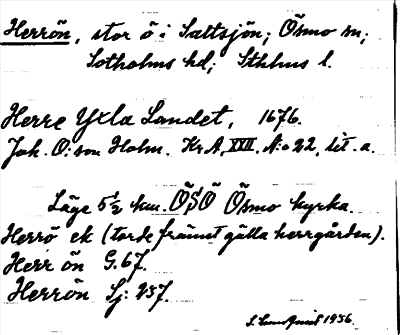 Herrön, stor ö i Saltsjön; Ösmo sn;
Sotholms hd; Sthlms l.
Herre Yxla Landet, 1676.
Joh. O:son Holm. Kr.A, XXII. N:o 22, lit. a.
Läge 5½ km. ÖSÖ Ösmo kyrka.
Herrö ek (torde främst gälla herrgården).
Herr ön G. 67.
Herrön Sj: 257.
1936.